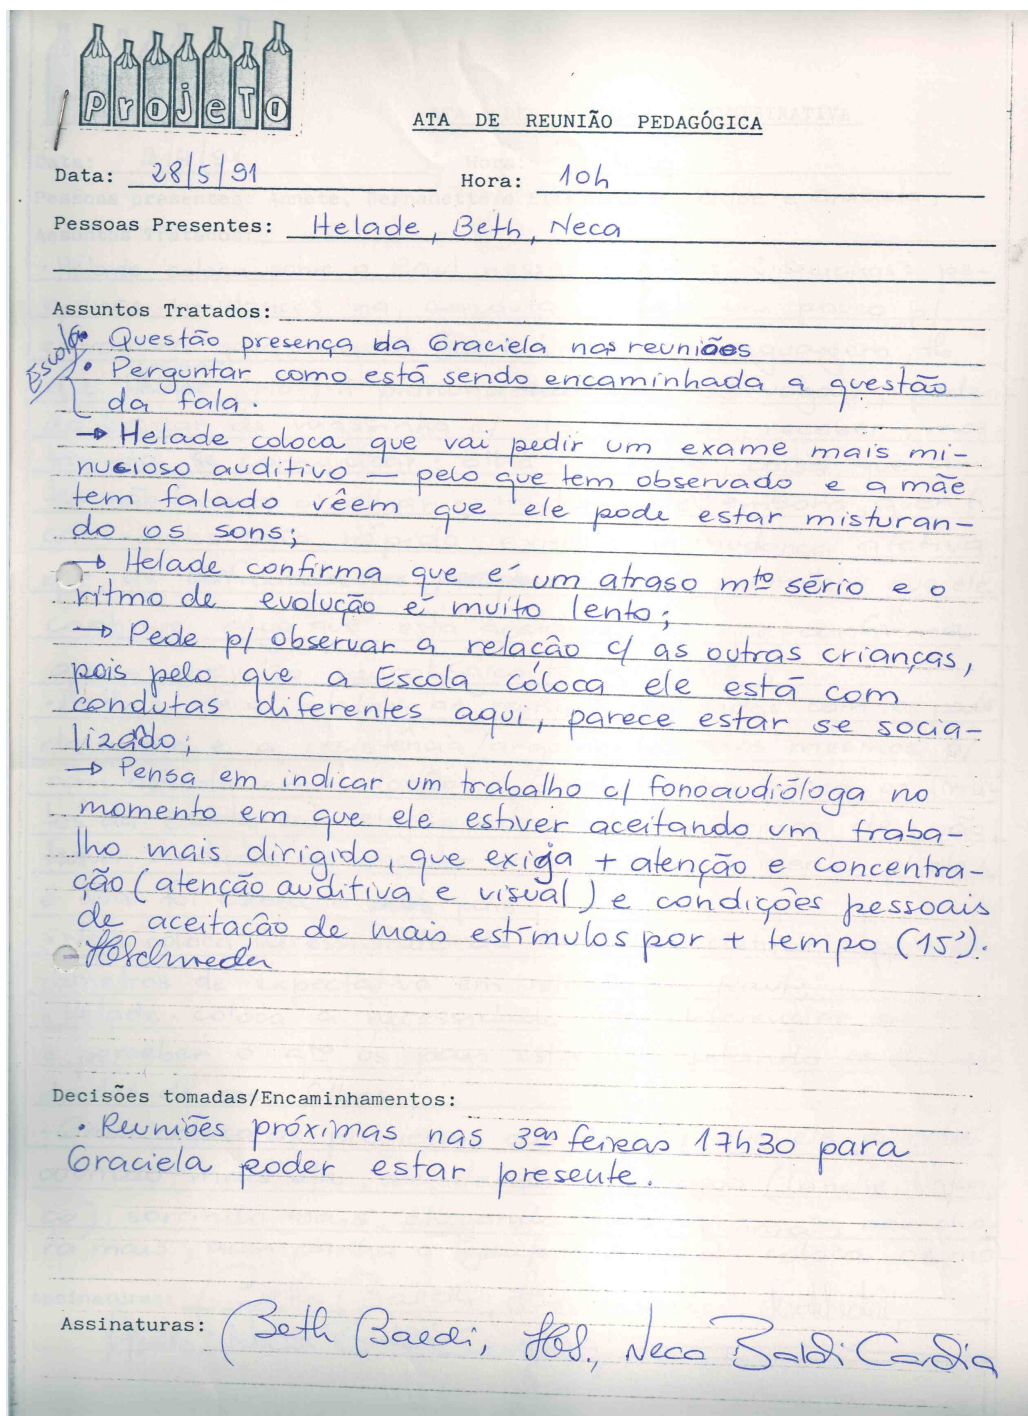 Projeto
ATA DE REUNIÃO PEDAGÓGICA
Data: 28/5/91 Hora: 10h
Pessoas Presentes: Helade, Beth, Neca
Assuntos Tratados:
Escola • Questão presença da Graciela nas reuniões
• Perguntar como está sendo encaminhada a questão
da fala.
→ Helade coloca que vai pedir um exame mais mi-
nucioso auditivo — pelo que tem observado e a mãe
tem falado vêem que ele pode estar misturan-
do os sons;
→ Helade confirma que é um atraso mto sério e o
ritmo de evolução é muito lento;
→ Pede p/ observar a relação c/ as outras crianças,
pois pelo que a Escola coloca ele está com
condutas diferentes aqui, parece estar se socia-
lizado;
→ Pensa em indicar um trabalho c/ fonoaudióloga no
momento em que ele estiver aceitando um traba-
lho mais dirigido, que exija + atenção e concentra-
ção (atenção auditiva e visual) e condições pessoais
de aceitação de mais estímulos por + tempo (15').
HSchneder
Decisões tomadas/Encaminhamentos:
• Reuniões próximas nas 3as feiras 17h30 para
Graciela poder estar presente.
Assinaturas: Beth Baldi, HS., Neca Baldi Cardia